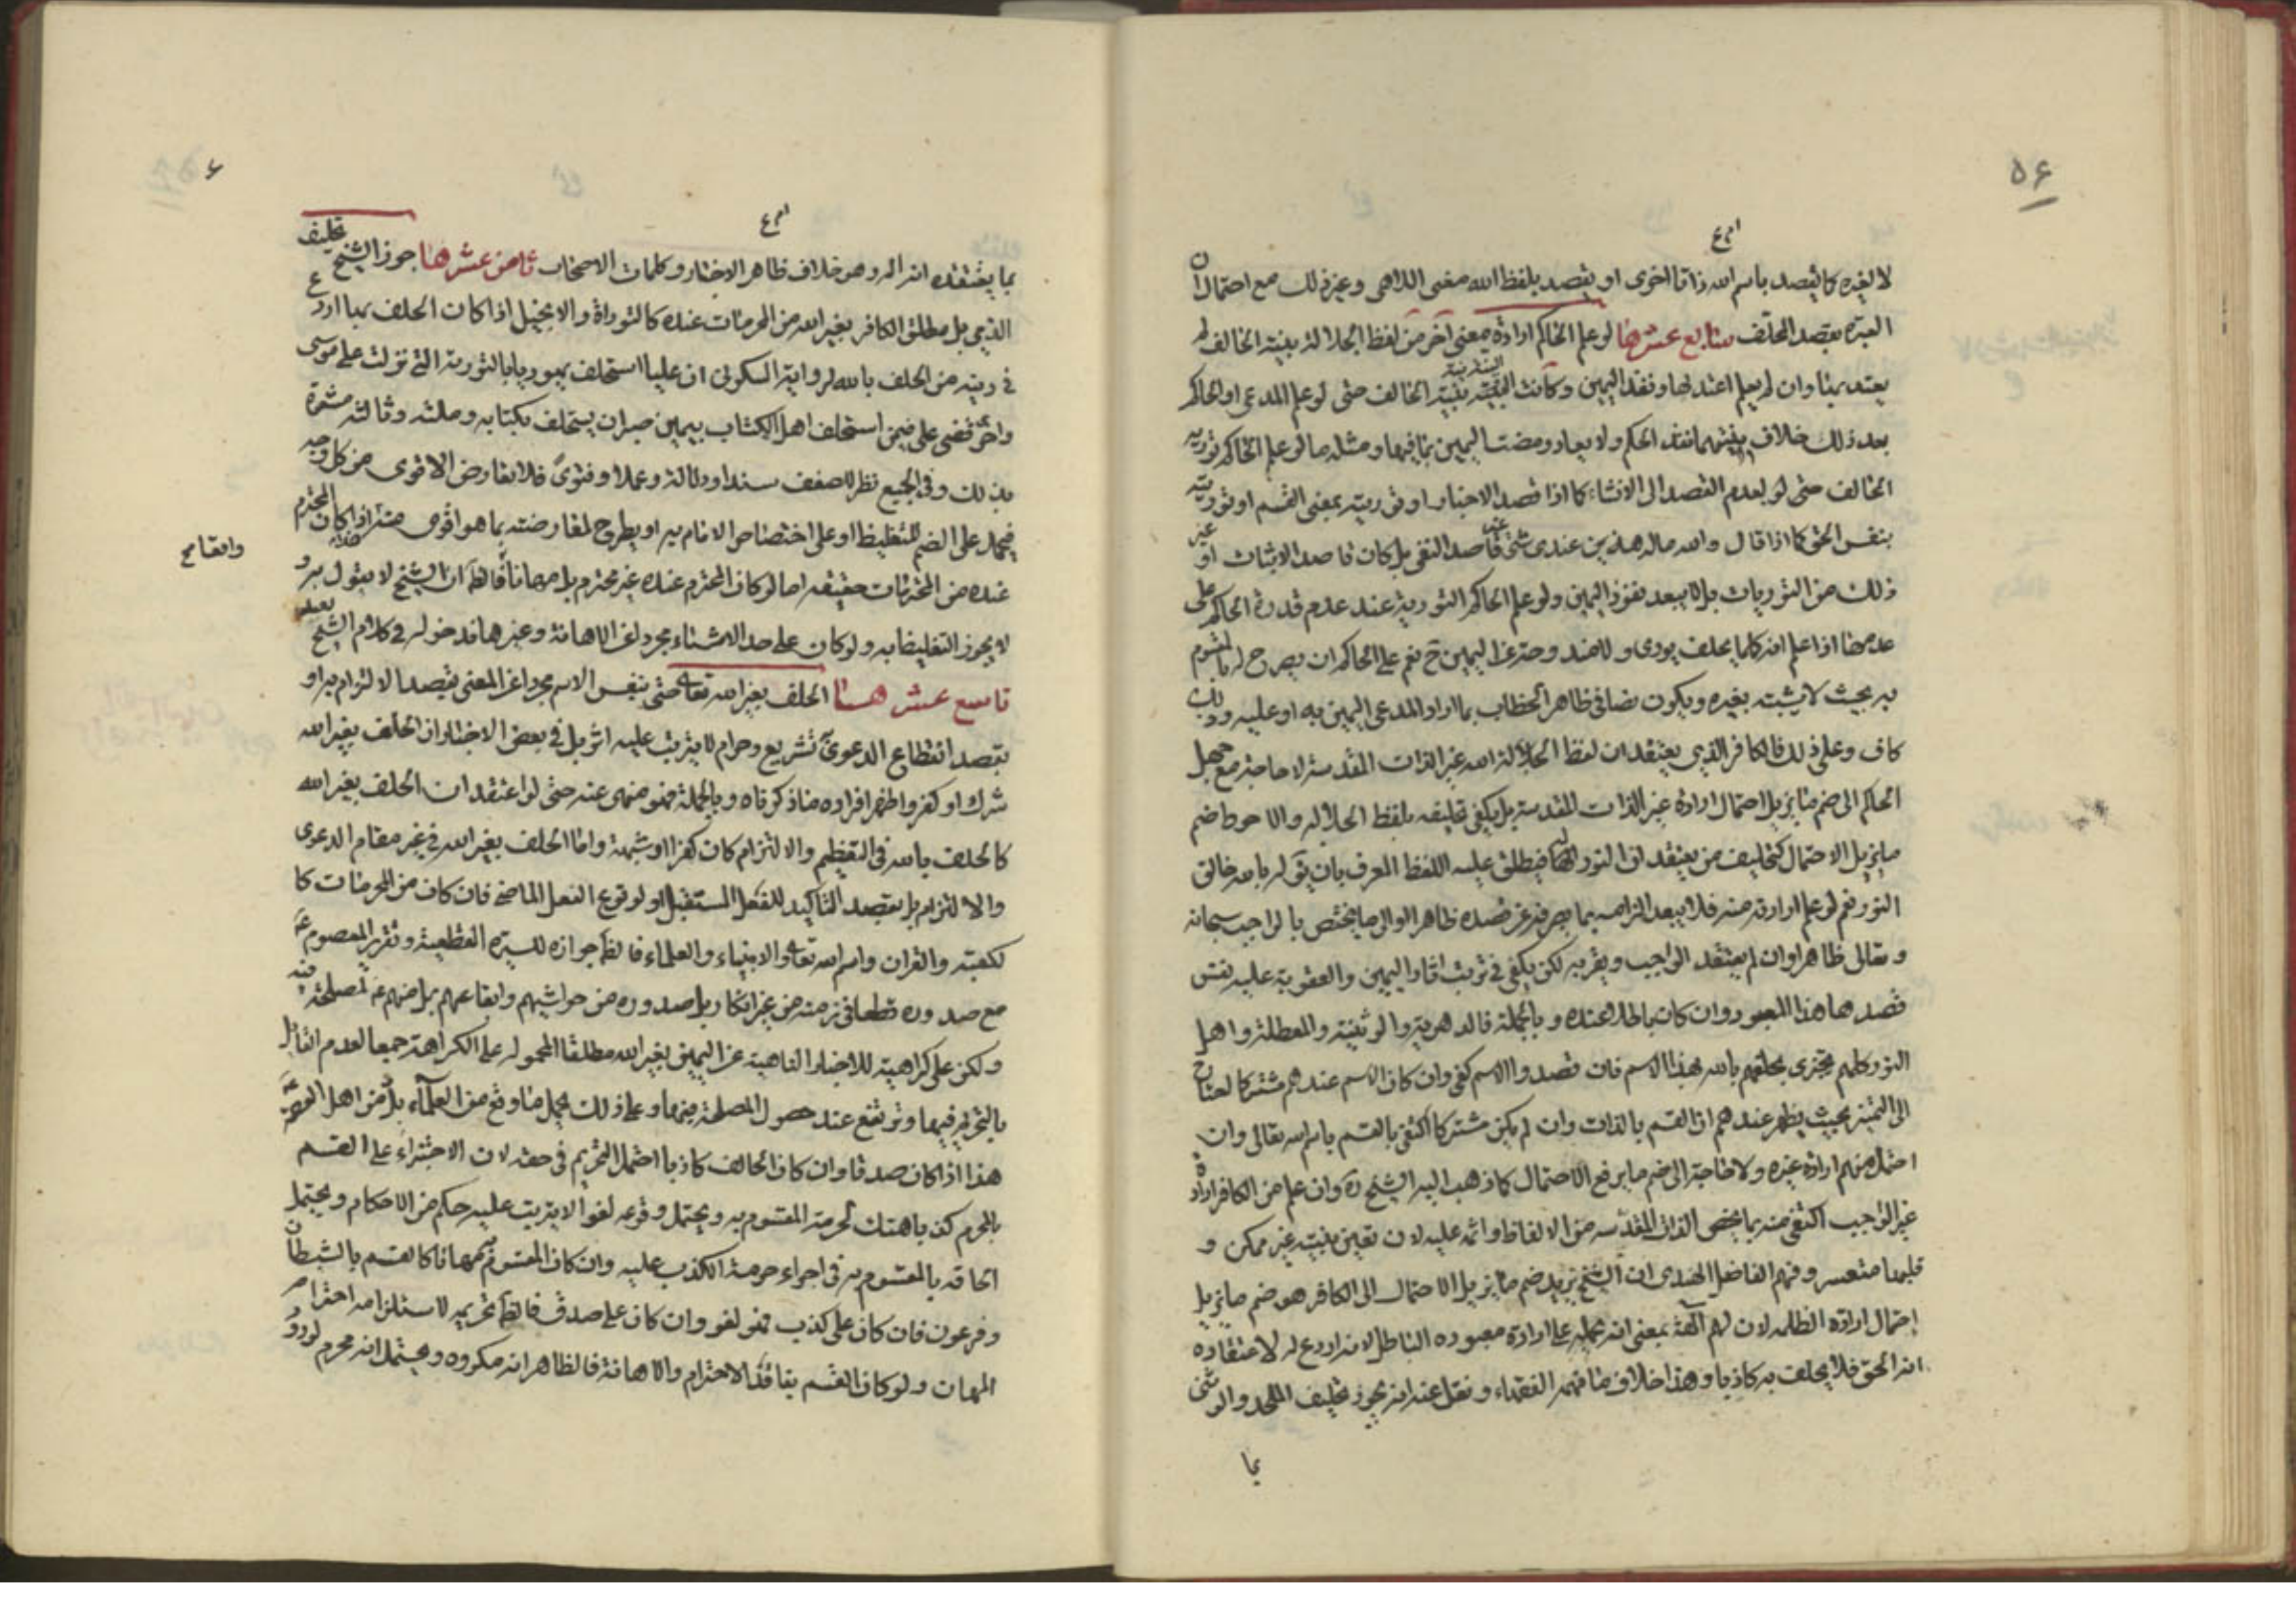 ٥٤
لا لغيره كما يقصد باسم الله ذاتا اخرى او يقصد بلفظ الله معنى اللاهى وغير ذلك مع احتمال ان
العبرة بقصد المحلف سابع عشرها لو علم الحاكم ارادة معنى آخر من لفظ الجلالة بنية الحالف لم
يعتد بها وان لم يعلم اعتد بها ونفذ اليمين وكانت النية بنية الحالف حتى لو علم المدعى او الحاكم
بعد ذلك خلاف بنيتهما نفذ الحكم ولا يعاد ومضت اليمين بما فيها ومثله ما لو علم الحاكم تورية
الحالف حتى لو لعدم القصد الى الانشاء كما اذا قصد الاخبار او توريته بمعنى القسم او توريته
بنفس الحق كما اذا قال والله ما لهذين عندى شئ غير قاصد النفى بل كان قاصد الاثبات او غير
ذلك من التوريات بل لا يبعد نفوذ اليمين ولو علم الحاكم التورية عند عدم قدرة الحاكم على
عدمها اذا علم انه كلما يحلف يورى ولا ضد وحتر غ اليمين ح نعم على الحاكم ان يصرح له بالمقسوم
به بحيث لا يشبه بغيره ويكون نصا فى ظاهر الخطاب بما اراد المدعى اليمين به او عليه وذلك
كاف وعلى ذلك فالكافر الذى يعتقد ان لفظ الجلالة لله غير الذات المقدسة لا حاجة مع جهل
الحاكم الى ضم ما يزيل احتمال ارادة غير الذات المقدسة بل يكفى تحليفه بلفظ الجلاله والاحوط ضم
ما يزيل الاحتمال كتحليف من يعتقد ان النور اله فيطلق عليه اللفظ المعرف بان يقول له بالله خالق
النور نعم لو علم ارادته منه فلا يبعد الزامه بما يصرفه عن قصده ظاهرا والى ما يختص بالواجب سبحانه
وتعالى ظاهرا وان لم يعتقد الواجب ويقر به لكن يكفى فى ترتب آثار اليمين والعقوبة عليه نفس
قصدها هذا المعبود وان كان باطلا عنده وبالجملة فالدهرية والوثنية والمعطلة واهل
النور كلهم يجتزى بحلفهم بالله بهذا الاسم فان قصدوا الاسم كفى وان كان الاسم عندهم مشتركا احتاج
الى التميز بحيث يظهر عندهم ان القسم بالذات وان لم يكن مشتركا اكتفى بالقسم باسم الله تعالى وان
احتمل منهم ارادة غيره ولا حاجة الى ضم ما يرفع الاحتمال كما ذهب اليه الشيخ ره وان علم من الكافر ارادة
غير الواجب اكتفى منه بما يخص الذات المقدسه من الالفاظ واثمه عليه لان تعيين بنيته غير ممكن و
قلبها متعسر وفهم الفاضل الهندى ان الشيخ يريد ضم ما يزيل الاحتمال الى الكافر هو ضم ما يزيل
احتمال ارادة الظلمه لان لهم آلهة بمعنى انه يحمله على ارادة معبوده الباطل لانه اردع له لاعتقاده
انه الحق فلا يحلف به كاذبا وهذا خلاف ما فهمه الفقهاء ونقل عنه انه يجوز تحليف الملحد والوثنى
بما
بما يعتقده انه اله وهو خلاف ظاهر الاخبار وكلمات الاصحاب ثامن عشرها جوز الشيخ تحليف
الذمى بل مطلق الكافر بغير الله من المحرمات عنده كالتوراة والانجيل اذا كان الحلف بها اردع
فى دينه من الحلف بالله لرواية السكونى ان عليا استحلف يهوديا بالتورية التى نزلت على موسى
واخرى قضى على فيمن استحلف اهل الكتاب بيمين صبر ان يستحلف بكتابه وملته وثالثه مشعرة
بذلك وفى الجميع نظر لضعف سندا ودلالة وعملا وفتوى فلا تعارض الاقوى من كل وجه
فيحمل على الضم للتغليظ او على اختصاص الامام به او يطرح لمعارضته بما هو اقوى منه اذا كان المحترم
عنده من المحرمات حقيقه اما لو كان المحترم عنده غير محترم بل مهانا فالظ ان الشيخ لا يقول به و
لا يجوز التغليظ به ولو كان على حد الاستثناء مجرد اعن الاهانة وغيرها فدخوله فى كلام الشيخ بعيد
تاسع عشرها الحلف بغير الله تعالى حتى بنفس الاسم مجردا عن المعنى بقصد الالتزام به او
بقصد انقطاع الدعوى تشريع وحرام لا يترتب عليه اثر بل فى بعض الاخبار ان الحلف بغير الله
شرك او كفر واظهر افراده ما ذكرناه وبالجملة فهو منهى عنه حتى لو اعتقد ان الحلف بغير الله
كالحلف بالله فى التعظيم والالتزام كان كفرا او شبهه واما الحلف بغير الله فى غير مقام الدعوى
والالتزام بل بقصد التأكيد للفعل المستقبل او لوقوع الفعل الماضى فان كان من المحرمات كا
لكعبة والقران واسم الله تعالى والانبياء والعلماء فالظ جوازه للسيرة القطعية وتقرير المعصوم ع
مع صدوره قطعا فى زمنه من غير انكار بل صدوره من حواشيهم واتباعهم بل منهم ع لمصلحة فيه
ولكن على كراهية للاخبار الناهية عن اليمين بغير الله مطلقا المحمولة على الكراهة جمعا لعدم القائل
بالتحريم فيها وترتفع عند حصول المصلحة فيها وعلى ذلك يحمل ما وقع من العلماء بل من اهل العصمة
هذا اذا كان صدقا وان كان الحالف كاذبا احتمل التحريم فى حقه لان الاجتراء على القسم
بالمحرم كذبا هتك لحرمة المقسوم به ويحتمل وقوعه لغوا لا يترتب عليه حكم من الاحكام ويحتمل
الحاقه بالمقسوم به فى اجراء حرمة الكذب عليه وان كان المقسوم به مهانا كالقسم بالشيطان
وفرعون فان كان على كذب فهو لغو وان كان على صدق فالظ تحريمه لاستلزامه احترام
المهان ولو كان القسم بفاقد الاحترام والاهانة فالظاهر انه مكروه ويحتمل انه محرم لورود